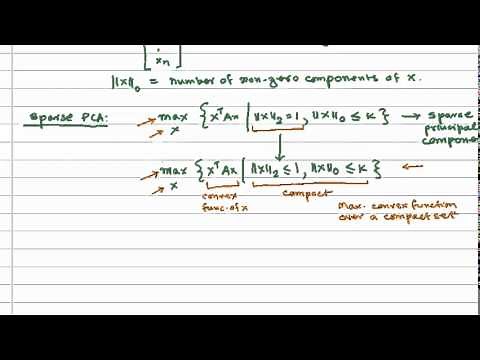 ⋮
xₙ
||x||₀ = number of non-zero components of x.
Sparse PCA: → max {xᵀAx | ||x||₂=1, ||x||₀ ≤ k} → sparse
→ x principal
component
→ max {xᵀAx | ||x||₂ ≤ 1, ||x||₀ ≤ k} ←
→ x convex compact max. convex function
func. of x over a compact set